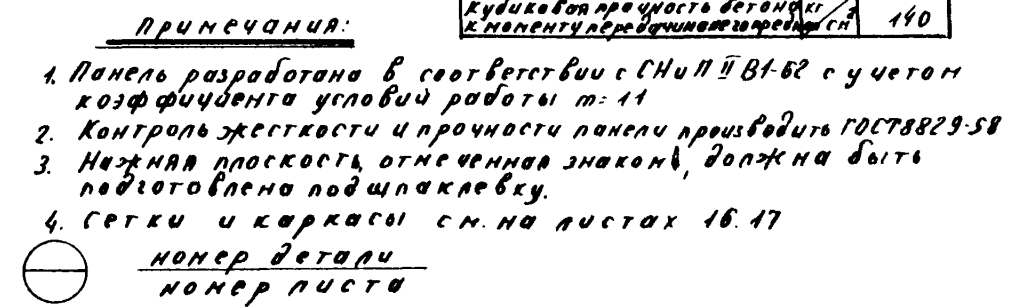 Кубиковая прочность бетона кг
к моменту передачи на него предвар см² 140
Примечания:
1. Панель разработана в соответствии с СНиП II В1-62 с учетом
коэффициента условий работы m = 11
2. Контроль жесткости и прочности панели производить ГОСТ8829-58
3. Нажняя плоскость, отмеченная знаком, должна быть
подготовлена под шпаклевку.
4. Сетки и каркасы см. на листах 16. 17
номер детали
номер листа